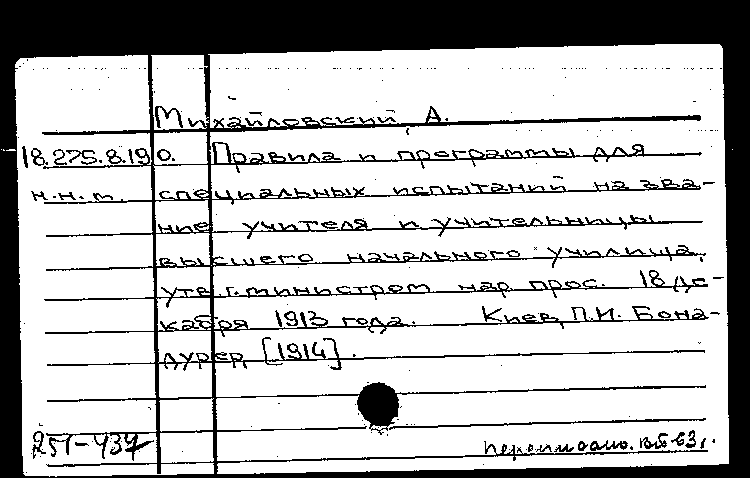 Михайловский, А.
18.275.8.190. Правила и программы для
н.н.т. специальных испытаний на зва-
ние учителя и учительницы
высшего начального училища,
утв. г. министром нар. прос. 18 де-
кабря 1913 года. Киев, П.И. Бона-
дурер, [1914].
251-437 переписано. в.б 63 г.